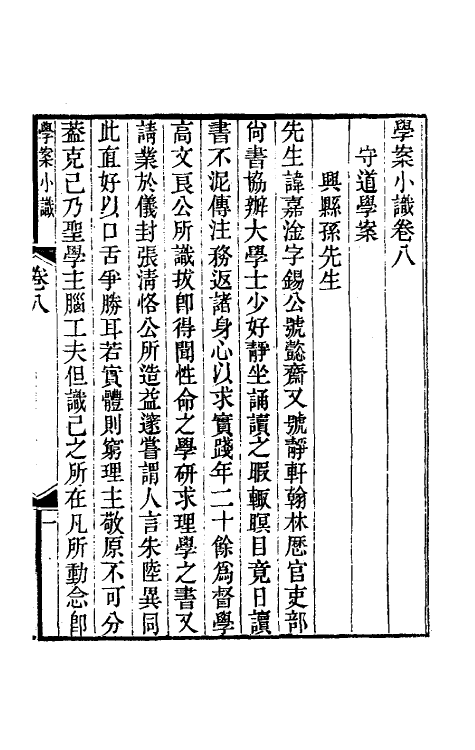 學案小識卷八
守道學案
興縣孫先生
先生諱嘉淦字錫公號懿齋又號靜軒翰林歷官吏部
尙書協辦大學士少好靜坐誦讀之暇輒瞑目竟日讀
書不泥傳注務返諸身心以求實踐年二十餘爲督學
高文良公所識拔卽得聞性命之學研求理學之書又
請業於儀封張淸恪公所造益邃嘗謂人言朱陸異同
此直好以口舌爭勝耳若實體則窮理主敬原不可分
葢克己乃聖學主腦工夫但識己之所在凡所動念卽
學案小識
卷八
一